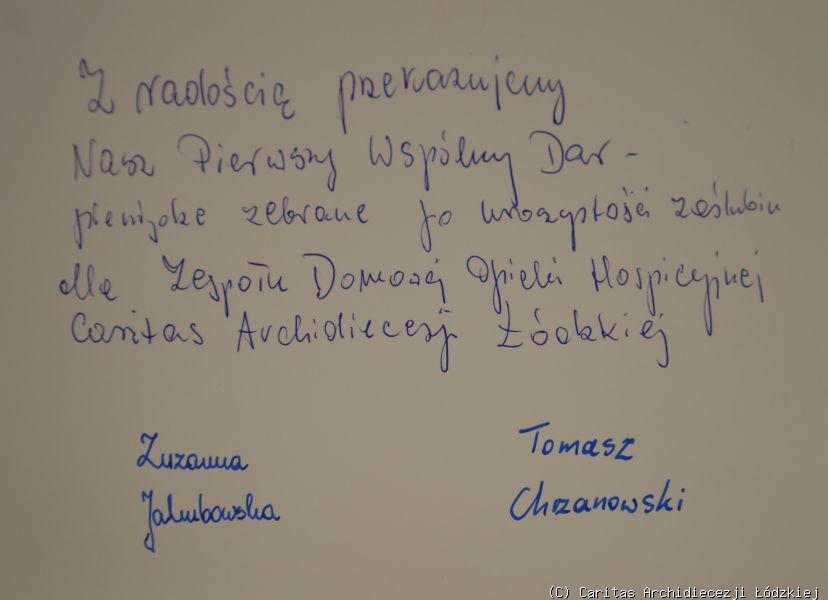 Z radością przekazujemy
Nasz Pierwszy Wspólny Dar -
pieniądze zebrane po uroczystości zaślubin
dla Zespołu Domowej Opieki Hospicyjnej
Caritas Archidiecezji Łódzkiej
Zuzanna Tomasz
Jakubowska Chrzanowski
(C) Caritas Archidiecezji Łódzkiej